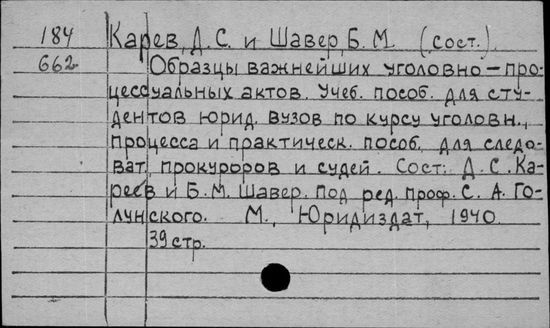 184 Карев, Д. С. и Шавер, Б. М. (сост.).
662 Образцы важнейших уголовно-про-
цессуальных актов. Учеб. пособ. для сту-
дентов юрид. вузов по курсу уголовн.,
процесса и практическ. пособ. для следо-
ват., прокуроров и судей. Сост.: Д. С. Ка-
реев и Б. М. Шавер. Под ред. проф. С. А. Го-
лунского. М., Юридиздат, 1940.
39 стр.